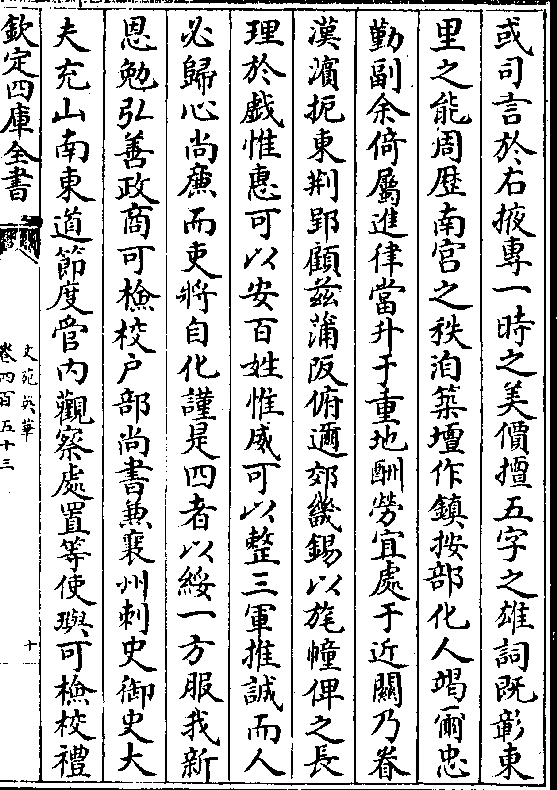 或司言於右掖專一時之美價擅五字之雄詞既彰東
里之能周歴南宫之秩洎築壇作鎮按部化人竭爾忠
勤副余倚屬進律當升于重地酬勞宜處于近關乃眷
漢濵扼東荆郢顧兹蒲阪俯邇郊畿錫以旄幢俾之長
理於戲惟恵可以安百姓惟威可以整三軍推誠而人
必歸心尚亷而吏將自化謹是四者以綏一方服我新
恩勉弘善政商可檢校户部尚書兼襄州刺史御史大
夫充山南東道節度管内觀察處置等使璵可檢校禮
欽定四庫全書
文苑英華
卷四百五十三
十